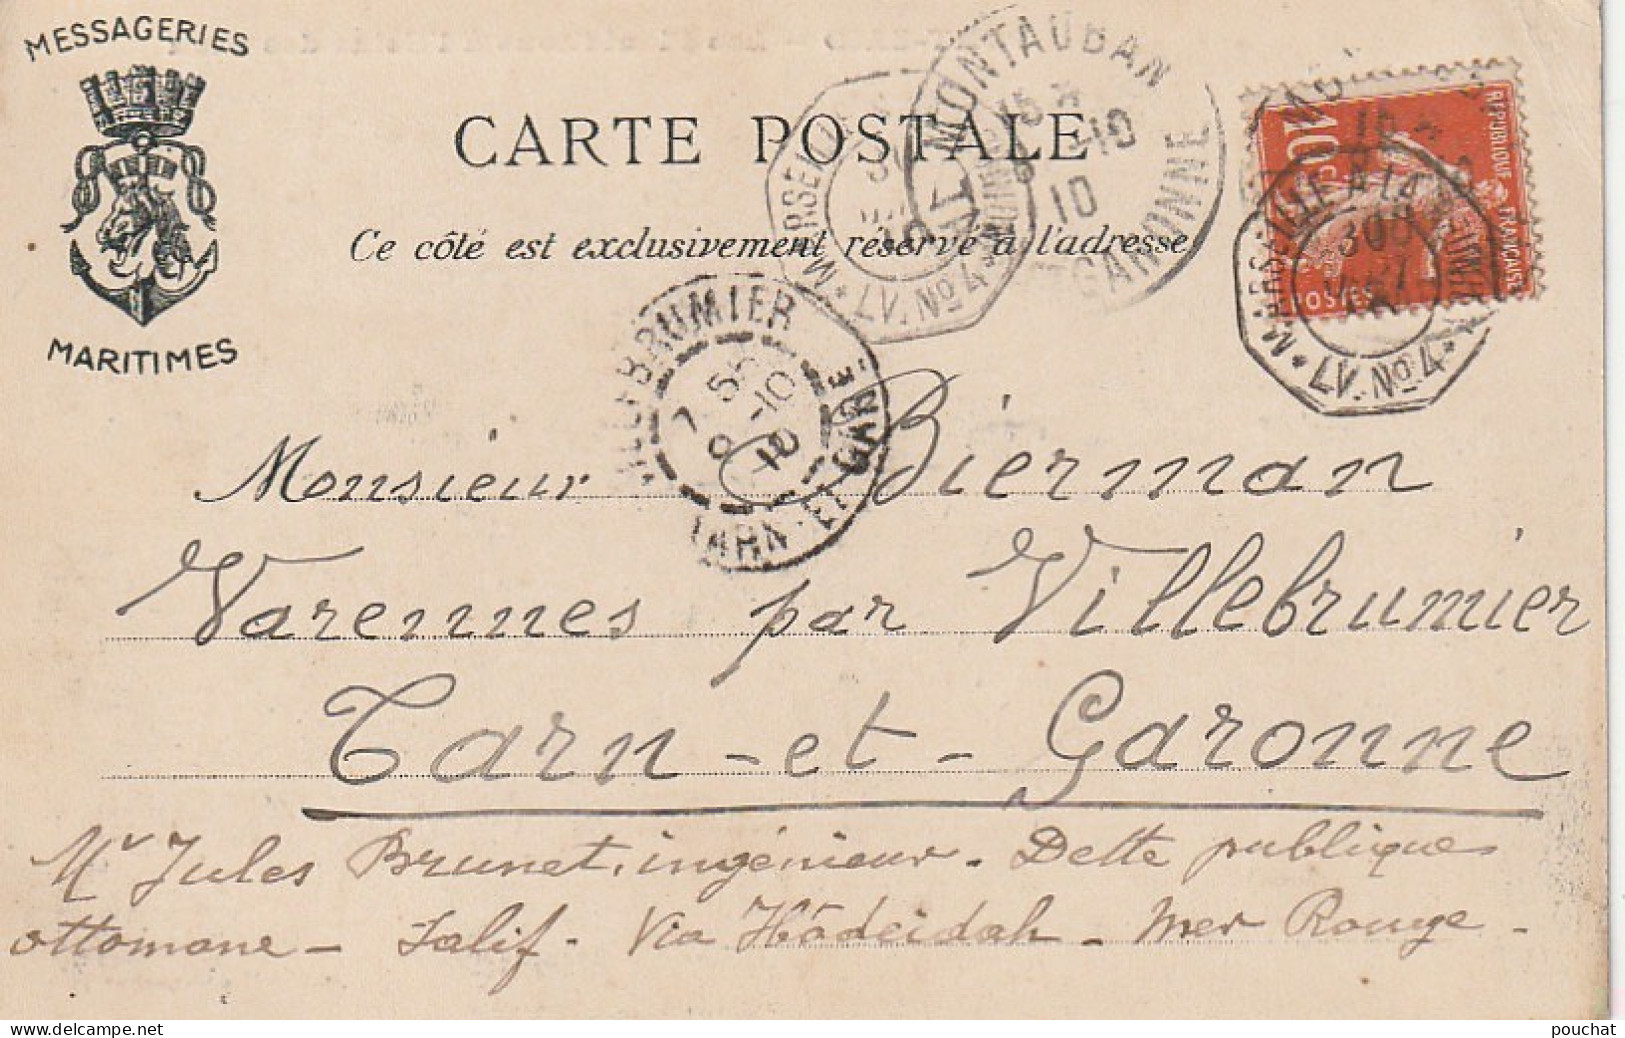 MESSAGERIES
MARITIMES
CARTE POSTALE
Ce côté est exclusivement réservé à l'adresse
MARSEILLE
LV. No 4
MONTAUBAN
15 *
-10
10
GARONNE
10c
REPUBLIQUE FRANÇAISE
POSTES
* MARSEILLE A LA REUNION *
LV. No 4
VILLEBRUMIER
7 55
-10
10
TARN-ET-GARONNE
Monsieur Bierman
Varennes par Villebrumier
Tarn-et-Garonne
Mr Jules Brunet, ingénieur - Dette publique
ottomane - Salif - Via Hôdeidah - Mer Rouge -
www.delcampe.net
pouchat